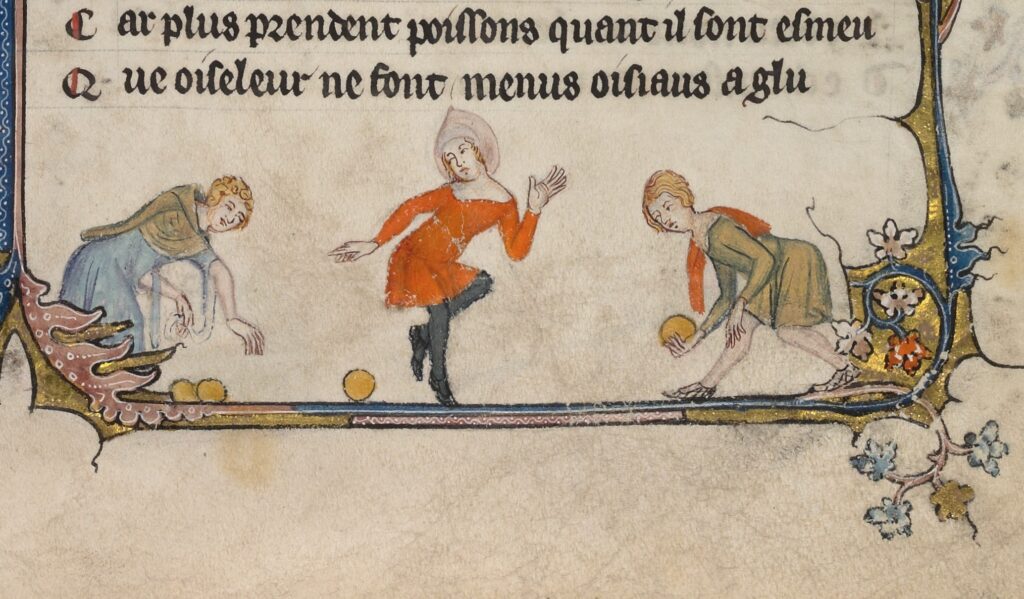 C ar plus prendent poissons quant il sont esmeu
Q ue oiseleur ne font menus oisiaus a glu